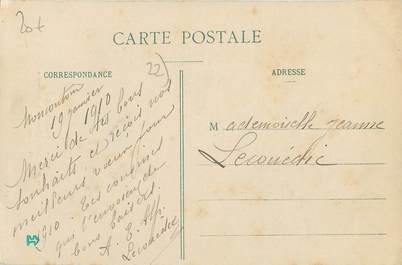 20+
CARTE POSTALE
CORRESPONDANCE
22)
ADRESSE
Moncontour
19 janvier
1910
Merci de tes bons
souhaits et reçois nos
meilleurs vœux pour
1910. Tes cousines
qui t'envoient de
bons baisers.
A. E.
Lecouédic
Mademoiselle Jeanne
Lecouédic